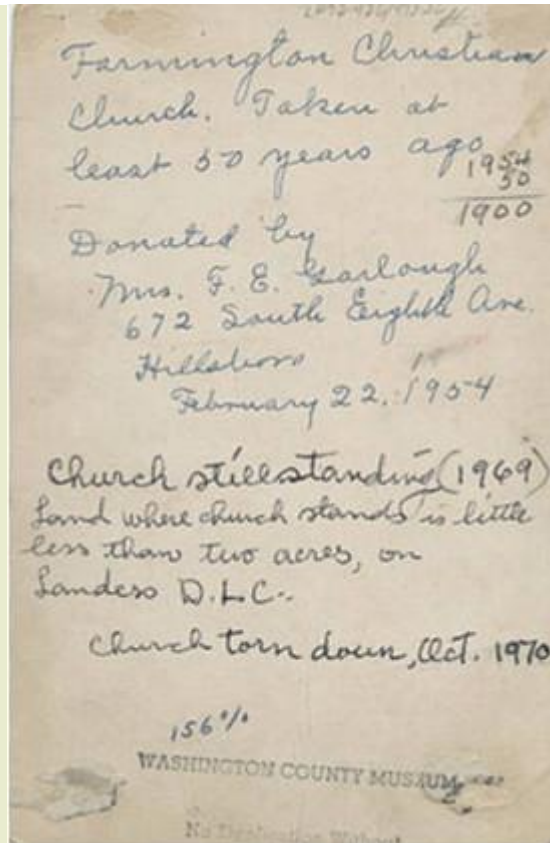 Farmington Christian
Church. Taken at
least 50 years ago
1954
50
1900
Donated by
Mrs. F. E. Garlough
672 South Eighth Ave.
Hillsboro
February 22, 1954
Church still standing (1969)
Land where church stands is little
less than two acres, on
Landess D.L.C..
Church torn down, Oct. 1970
156%
WASHINGTON COUNTY MUSEUM
No Duplication Without